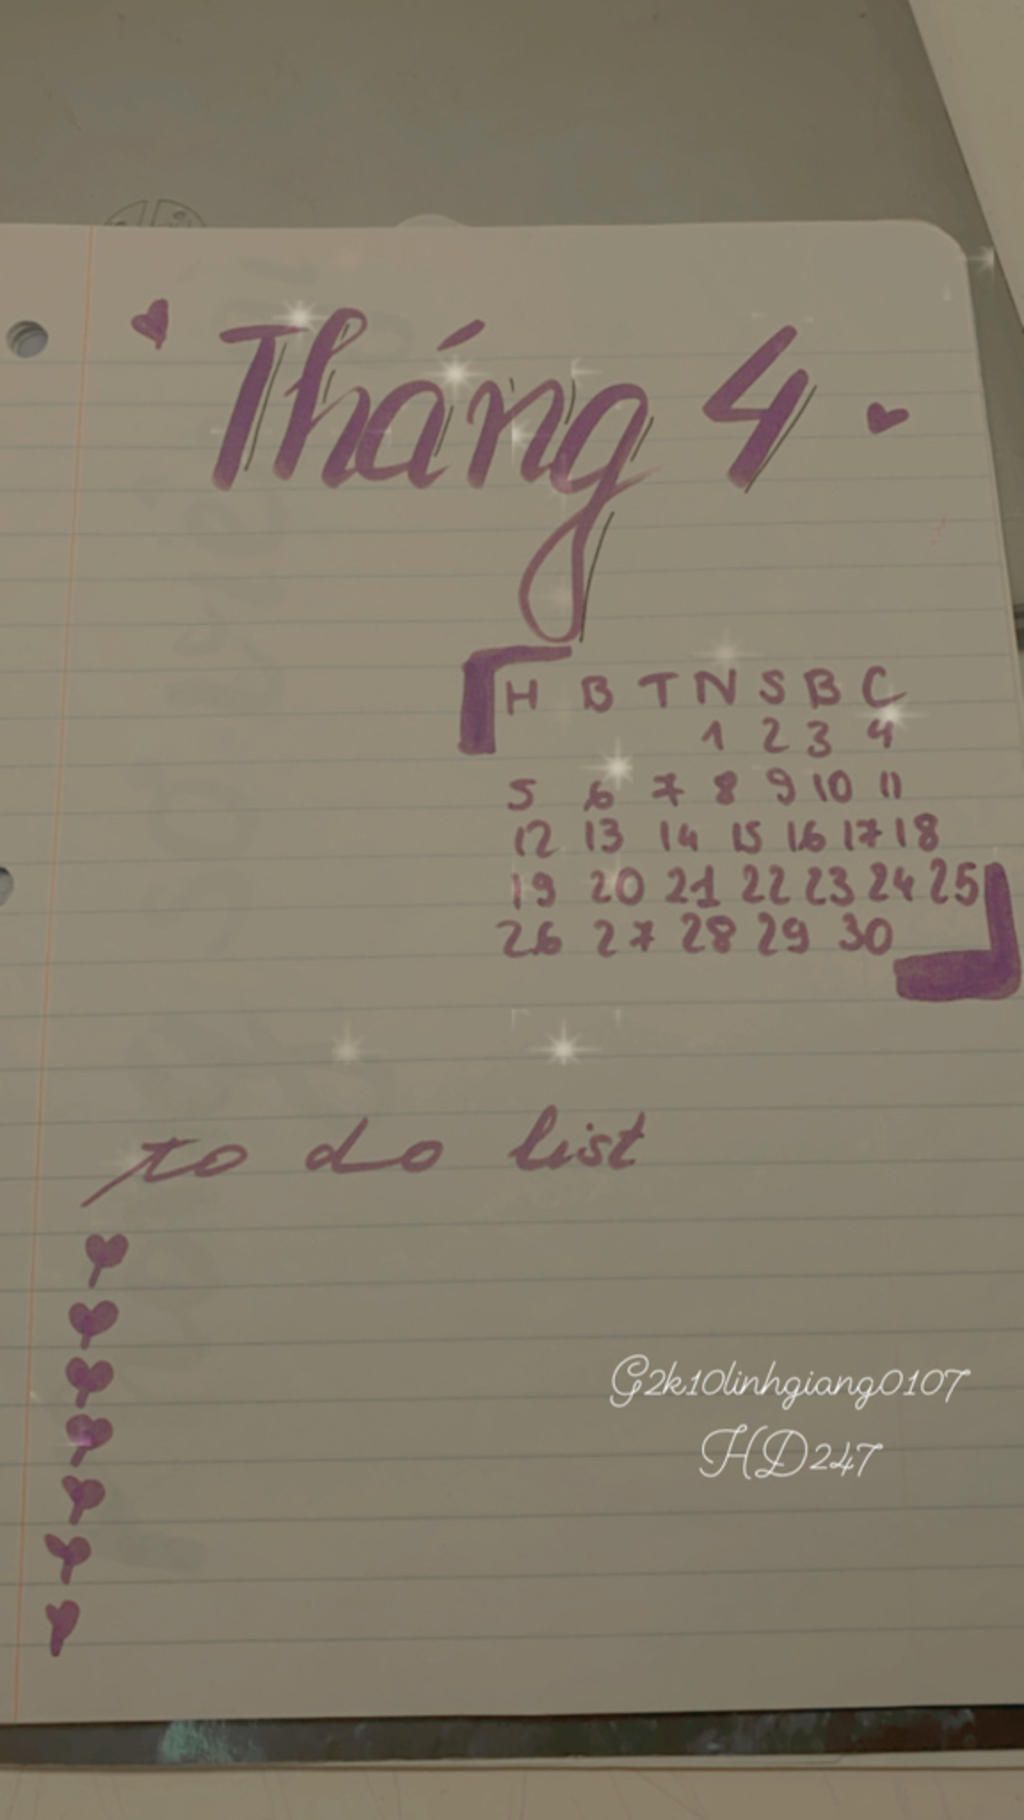 Tháng 4
H B T N S B C
1 2 3 4
5 6 7 8 9 10 11
12 13 14 15 16 17 18
19 20 21 22 23 24 25
26 27 28 29 30
to do list
G2k10linhgiang0107
HD247